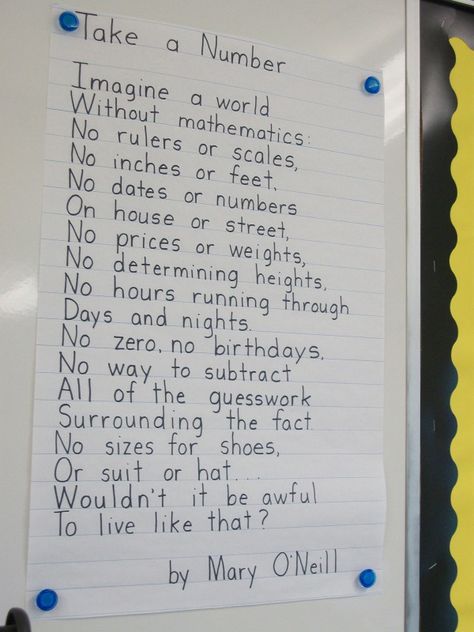 Take a Number
Imagine a world
Without mathematics:
No rulers or scales,
No inches or feet,
No dates or numbers
On house or street,
No prices or weights,
No determining heights,
No hours running through
Days and nights.
No zero, no birthdays,
No way to subtract
All of the guesswork
Surrounding the fact.
No sizes for shoes,
Or suit or hat...
Wouldn't it be awful
To live like that?
by Mary O'Neill